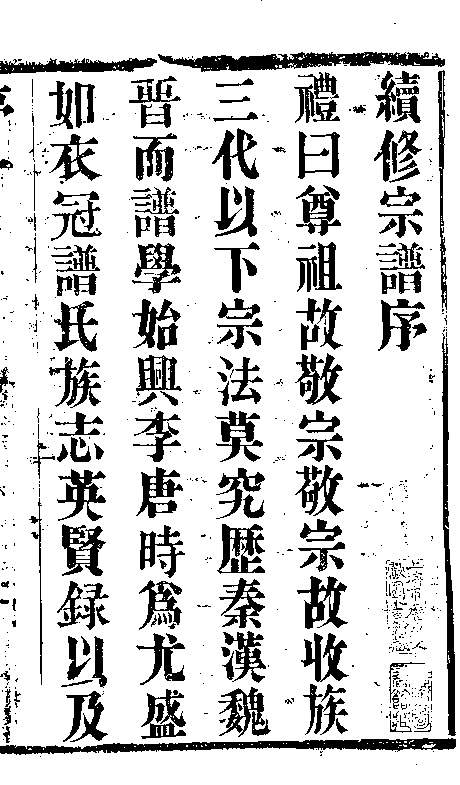 續修宗譜序
禮曰尊祖故敬宗敬宗故收族
三代以下宗法莫究歷秦漢魏
晉而譜學始興李唐時爲尤盛
如衣冠譜氏族志英賢録以及